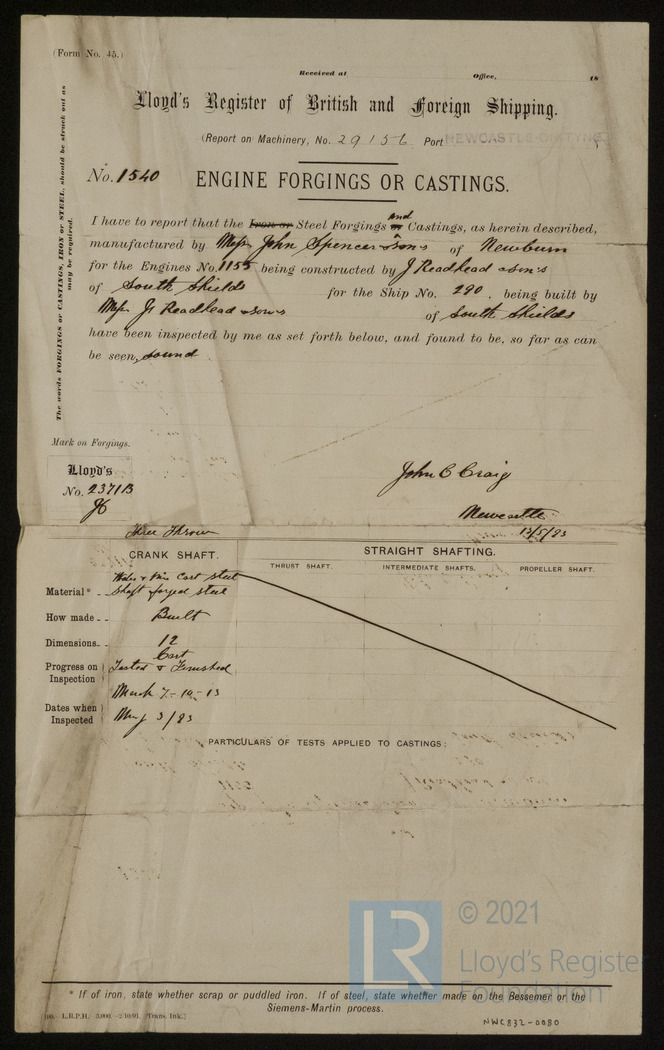 (Form No. 45.)
Received at Office, 18
Lloyd's Register of British and Foreign Shipping.
(Report on Machinery, No. 29156 Port NEWCASTLE-ON-TYNE)
No. 1540
ENGINE FORGINGS OR CASTINGS.
The words FORGINGS or CASTINGS, IRON or STEEL, should be struck out as
may be required.
I have to report that the Iron or Steel Forgings or and Castings, as herein described,
manufactured by Messrs John Spencer & Sons of Newburn
for the Engines No. 1155 being constructed by J Readhead & Sons
of South Shields for the Ship No. 290, being built by
Messrs J. Readhead & Sons of South Shields
have been inspected by me as set forth below, and found to be, so far as can
be seen, sound.
Mark on Forgings.
Lloyd's
No. 2371B
John C Craig
Newcastle
13/5/93
Three Throw
CRANK SHAFT. STRAIGHT SHAFTING.
THRUST SHAFT. INTERMEDIATE SHAFTS. PROPELLER SHAFT.
Webs & Pins Cast steel
Material* Shaft forged steel
How made Built
Dimensions 12
Cast
Progress on Inspection Tested & Finished
March 7-10-13
Dates when Inspected May 3/93
PARTICULARS OF TESTS APPLIED TO CASTINGS:
* If of iron, state whether scrap or puddled iron. If of steel, state whether made on the Bessemer or the
Siemens-Martin process.
100.- L.R.P.H. 5,000. -2/10/91. [Trans. Ink.]
NWC832-0080
LR
© 2021
Lloyd's Register
Foundation